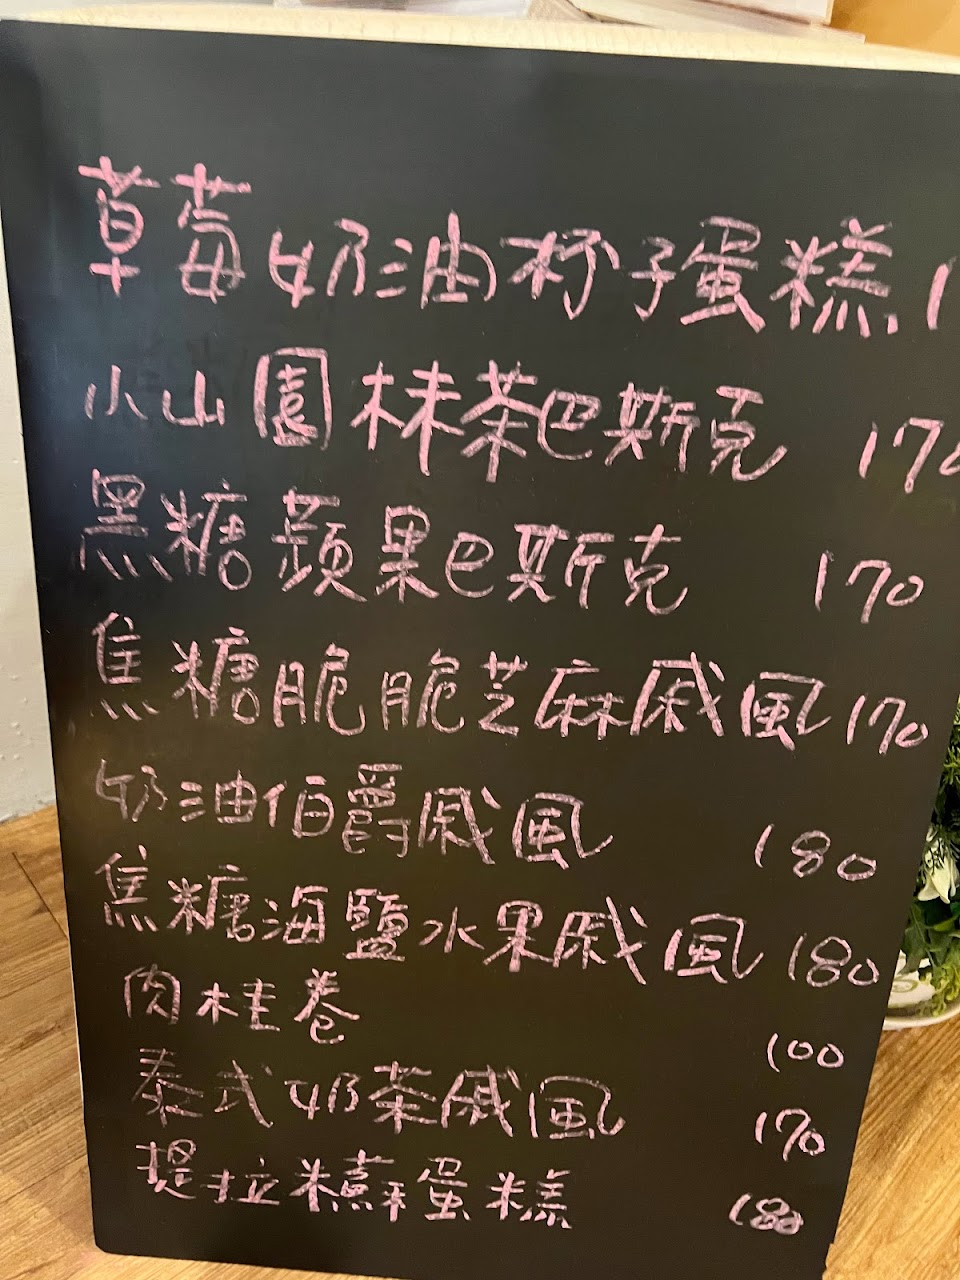 草莓奶油杯子蛋糕 1
小山園抹茶巴斯克 170
黑糖蘋果巴斯克 170
焦糖脆脆芝麻戚風 170
奶油伯爵戚風 180
焦糖海鹽水果戚風 180
肉桂卷 100
泰式奶茶戚風 170
提拉米蘇蛋糕 180